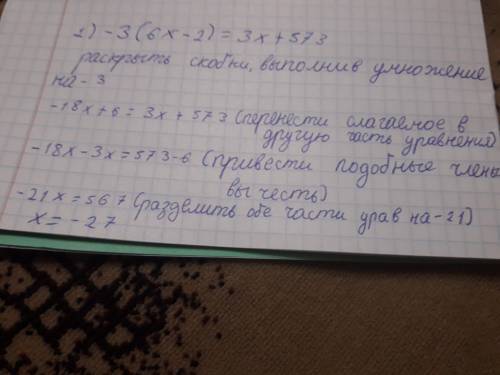 2) -3(6x-2)=3x+573
раскрыть скобки, выполнив умножение
на -3
-18x+6=3x+573 (перенести слагаемое в
другую часть уравнения)
-18x-3x=573-6 (привести подобные члены
вычесть)
-21x=567 (разделить обе части урав на -21)
x=-27